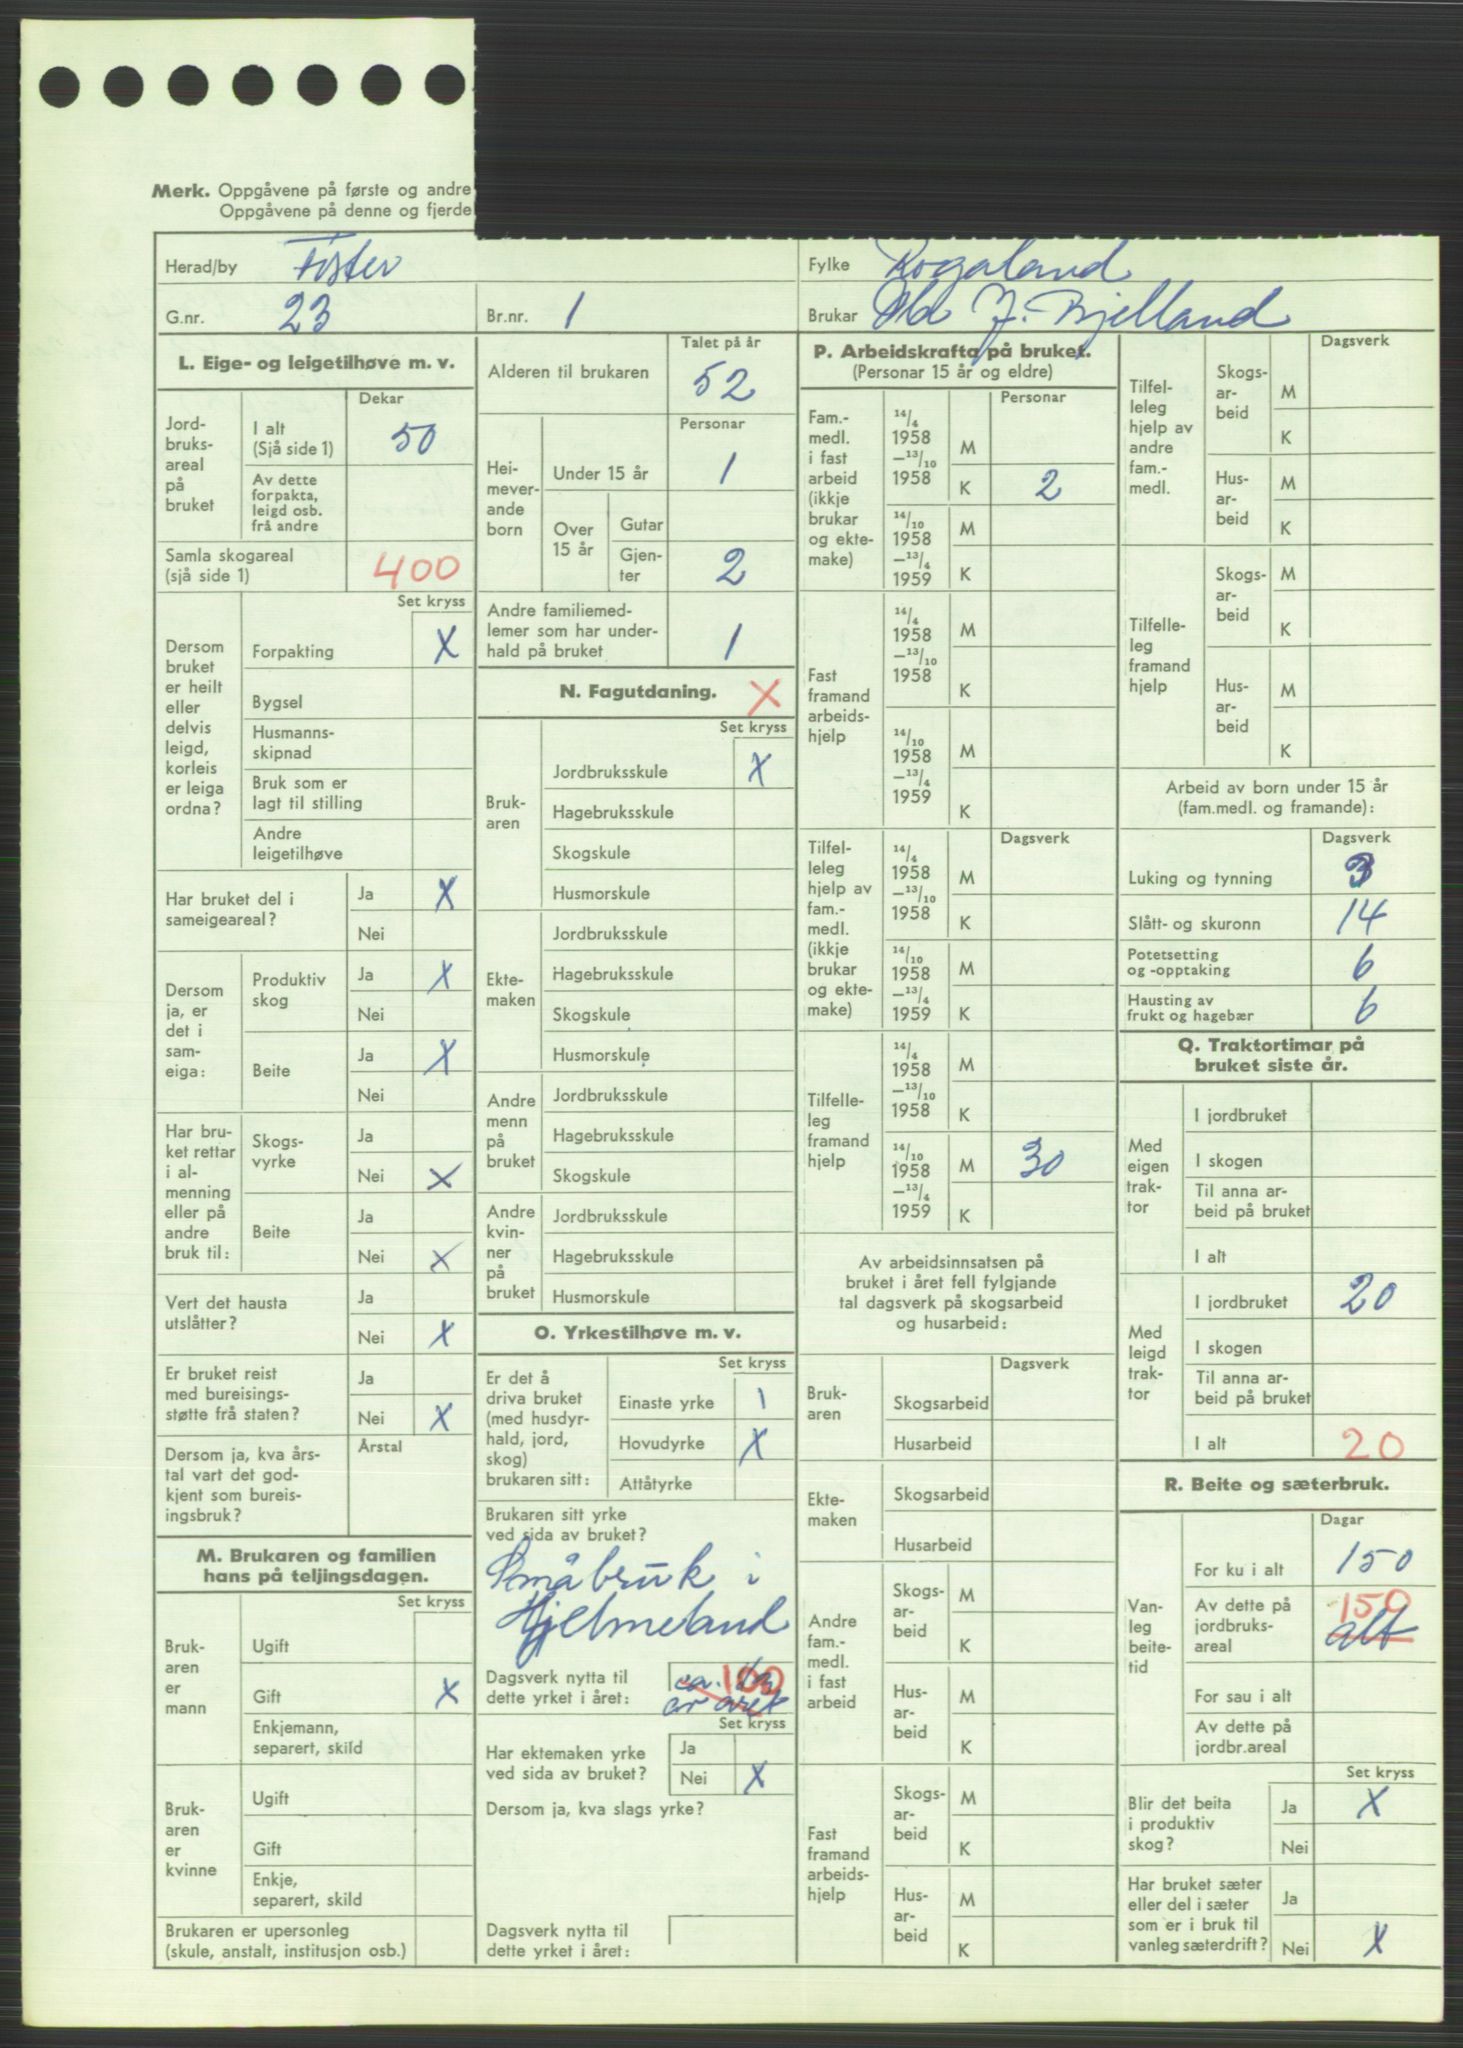 Merk. Oppgåvene på første og andre
Oppgåvene på denne og fjerde
Herad/by Fister
Fylke Rogaland
G.nr. 23 Br.nr. 1
Brukar J. Bjelland
L. Eige- og leigetilhøve m. v.
Dekar
Jord-
bruks-
areal
på
bruket
I alt
(Sjå side 1) 50
Av dette
forpakta,
leigd osb.
frå andre
Samla skogareal
(sjå side 1) 400
Set kryss
Dersom
bruket
er heilt
eller
delvis
leigd,
korleis
er leiga
ordna?
Forpakting X
Bygsel
Husmanns-
skipnad
Bruk som er
lagt til stilling
Andre
leigetilhøve
Har bruket del i
sameigeareal?
Ja X
Nei
Dersom
ja, er
det i
sam-
eiga:
Produktiv
skog
Ja X
Nei
Beite
Ja X
Nei
Har bru-
ket rettar
i al-
menning
eller på
andre
bruk til:
Skogs-
vyrke
Ja
Nei X
Beite
Ja
Nei X
Vert det hausta
utslåtter?
Ja
Nei X
Er bruket reist
med bureisings-
støtte frå staten?
Ja
Nei X
Dersom ja, kva års-
tal vart det god-
kjent som bureis-
ingsbruk?
Årstal
M. Brukaren og familien
hans på teljingsdagen.
Set kryss
Bruk-
aren
er
mann
Ugift
Gift X
Enkjemann,
separert, skild
Bruk-
aren
er
kvinne
Ugift
Gift
Enkje,
separert, skild
Brukaren er upersonleg
(skule, anstalt, institusjon osb.)
Talet på år
Alderen til brukaren 52
Personar
Hei-
mever-
ande
born
Under 15 år 1
Over
15 år
Gutar
Gjen-
ter 2
Andre familiemed-
lemer som har under-
hald på bruket 1
N. Fagutdaning. X
Set kryss
Bruk-
aren
Jordbruksskule X
Hagebruksskule
Skogskule
Husmorskule
Ekte-
maken
Jordbruksskule
Hagebruksskule
Skogskule
Husmorskule
Andre
menn
på
bruket
Jordbruksskule
Hagebruksskule
Skogskule
Andre
kvin-
ner
på
bruket
Jordbruksskule
Hagebruksskule
Husmorskule
O. Yrkestilhøve m. v.
Set kryss
Er det å
driva bruket
(med husdyr-
hald, jord,
skog)
brukaren sitt:
Einaste yrke 1
Hovudyrke X
Attåtyrke
Brukaren sitt yrke
ved sida av bruket?
Småbruk i
Hjelmeland
Dagsverk nytta til
dette yrket i året:
ca. 100
av året
Set kryss
Har ektemaken yrke
ved sida av bruket?
Ja
Nei X
Dersom ja, kva slags yrke?
Dagsverk nytta til
dette yrket i året:
P. Arbeidskrafta på bruket.
(Personar 15 år og eldre)
Personar
Fam.-
medl.
i fast
arbeid
(ikkje
brukar
og ekte-
make)
14/4
1958
—13/10
1958
M
K 2
14/10
1958
—13/4
1959
M
K
Fast
framand
arbeids-
hjelp
14/4
1958
—13/10
1958
M
K
14/10
1958
—13/4
1959
M
K
Dagsverk
Tilfel-
leleg
hjelp av
fam.-
medl.
(ikkje
brukar
og ekte-
make)
14/4
1958
—13/10
1958
M
K
14/10
1958
—13/4
1959
M
K
Tilfelle-
leg
framand
hjelp
14/4
1958
—13/10
1958
M
K
14/10
1958
—13/4
1959
M 30
K
Av arbeidsinnsatsen på
bruket i året fell fylgjande
tal dagsverk på skogsarbeid
og husarbeid:
Dagsverk
Bruk-
aren
Skogsarbeid
Husarbeid
Ekte-
maken
Skogsarbeid
Husarbeid
Andre
fam.-
medl.
i fast
arbeid
Skogs-
ar-
beid
M
K
Hus-
ar-
beid
M
K
Fast
framand
arbeids-
hjelp
Skogs-
ar-
beid
M
K
Hus-
ar-
beid
M
K
Dagsverk
Tilfel-
leleg
hjelp av
andre
fam.-
medl.
Skogs-
ar-
beid
M
K
Hus-
ar-
beid
M
K
Tilfelle-
leg
framand
hjelp
Skogs-
ar-
beid
M
K
Hus-
ar-
beid
M
K
Arbeid av born under 15 år
(fam.medl. og framande):
Dagsverk
Luking og tynning 3
Slått- og skuronn 14
Potetsetting
og -opptaking 6
Hausting av
frukt og hagebær 6
Q. Traktortimar på
bruket siste år.
Med
eigen
trak-
tor
I jordbruket
I skogen
Til anna ar-
beid på bruket
I alt
Med
leigd
trak-
tor
I jordbruket 20
I skogen
Til anna ar-
beid på bruket
I alt 20
R. Beite og sæterbruk.
Dagar
Van-
leg
beite-
tid
For ku i alt 150
Av dette på
jordbruks-
areal
150
alt
For sau i alt
Av dette på
jordbr.areal
Set kryss
Blir det beita
i produktiv
skog?
Ja X
Nei
Har bruket sæter
eller del i sæter
som er i bruk til
vanleg sæterdrift?
Ja
Nei X